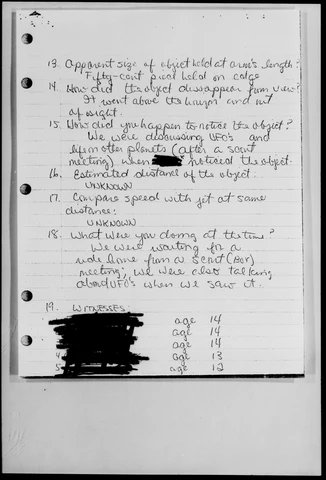 13. Apparent size of object held at arm's length:
Fifty-cent piece held on edge
14. How did the object disappear from view?
It went above the horizon and out
of sight.
15. How did you happen to notice the object?
We were discussing UFO's and
life on other planets (after a scout
meeting) when noticed the object.
16. Estimated distance of the object:
UNKNOWN
17. Compare speed with jet at same
distance:
UNKNOWN
18. What were you doing at the time?
We were waiting for a
ride home from a scout (Boy)
meeting; we were also talking
about UFO's when we saw it.
19. WITNESSES:
age 14
age 14
age 14
4 age 13
5 age 12